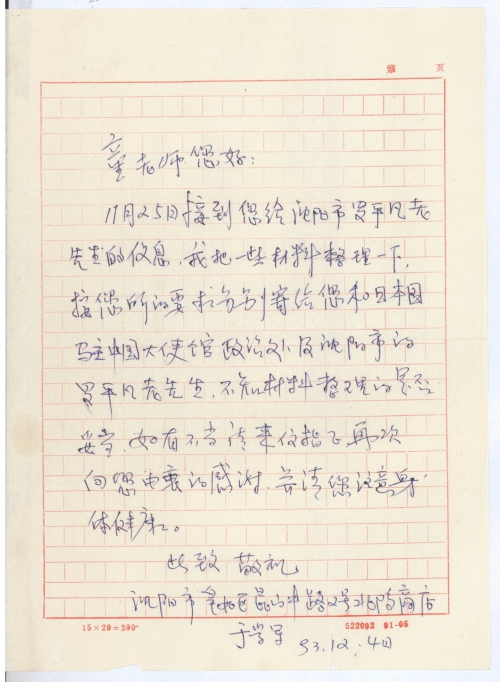 第 页
童老师您好:
11月25日接到您给沈阳市罗平凡老
先生的信息,我把一些材料整理一下,
按您所的要求分别寄给您和日本国
驻中国大使馆政治处及沈阳市的
罗平凡老先生,不知材料整理的是否
妥当,如有不当请来信指正再次
向您由衷的感谢,并请您注意身
体健康。
此致 敬礼
沈阳市皇姑区昆山中路 号 商店
于学军 93.12.4日
15×20=300
522092 91-05